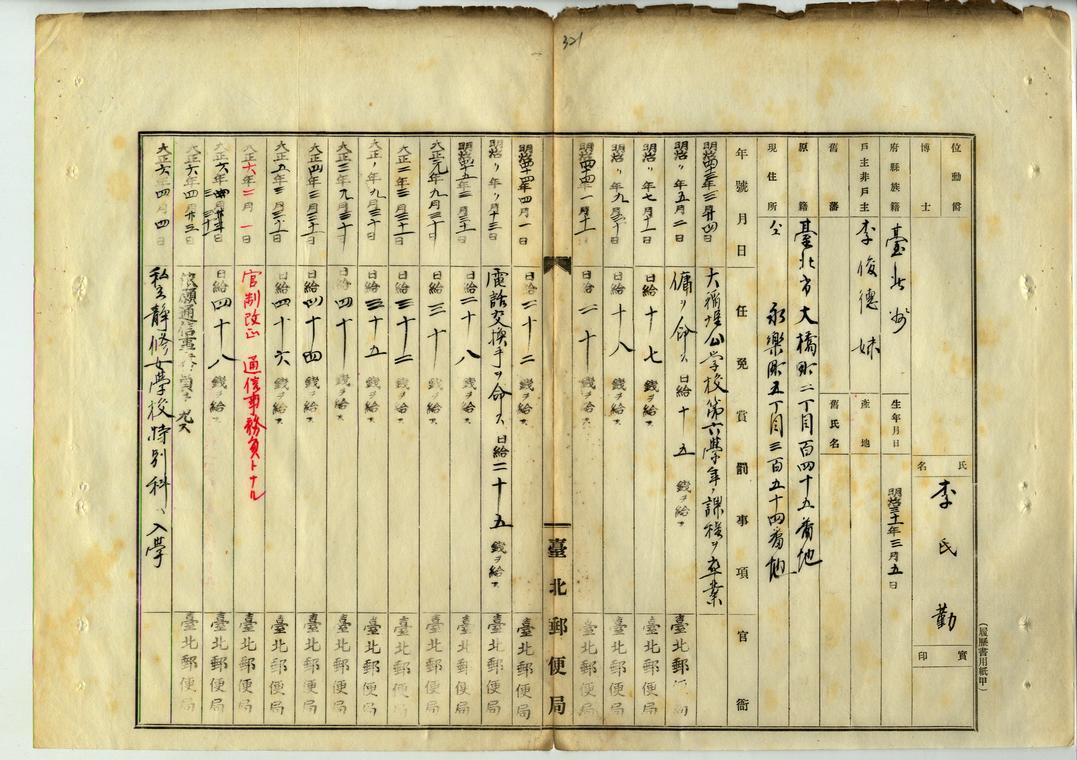 321
(履歷書用紙甲)
位勳爵
氏名 李氏勤
實印
博士
府縣族籍 臺北州
生年月日 明治三十一年三月五日
戶主非戶主 李俊德 妹
產地
舊藩
舊氏名
原籍 臺北市大橋町二丁目百四十五番地
現住所 仝 永樂町五丁目三百五十四番地
年號月日 任免賞罰事項 官衙
明治四十三年三月廿四日 大稻埕公學校第六學年ノ課程ヲ卒業
明治〃年五月二日 傭ヲ命ス 日給十五錢ヲ給ス 臺北郵便
明治〃年七月十一日 日給十七錢ヲ給ス 臺北郵便局
明治〃年九月三十日 日給十八錢ヲ給ス 臺北郵便局
明治四十四年一月十一日 日給二十錢ヲ給ス 臺北郵便局
臺北郵便局
明治四十四年四月一日 日給二十二錢ヲ給ス 臺北郵便局
明治〃年〃月十三日 電話交換手ヲ命ス 日給二十五錢ヲ給ス 臺北郵便局
明治四十五年三月三十日 日給二十八錢ヲ給ス 臺北郵便局
大正元年九月三十日 日給三十錢ヲ給ス 臺北郵便局
大正二年三月三十一日 日給三十二錢ヲ給ス 臺北郵便局
大正〃年九月三十日 日給三十五錢ヲ給ス 臺北郵便局
大正三年九月三十日 日給四十錢ヲ給ス 臺北郵便局
大正四年三月三十一日 日給四十四錢ヲ給ス 臺北郵便局
大正五年三月三十一日 日給四十六錢ヲ給ス 臺北郵便局
大正六年二月一日 官制改正 通信事務員トナル 臺北郵便局
大正六年 月三十日 日給四十八錢ヲ給ス 臺北郵便局
大正六年四月 三日 依願通信事務員ヲ免ス 臺北郵便局
大正六年四月四日 私立靜修女學校特別科ヘ入學